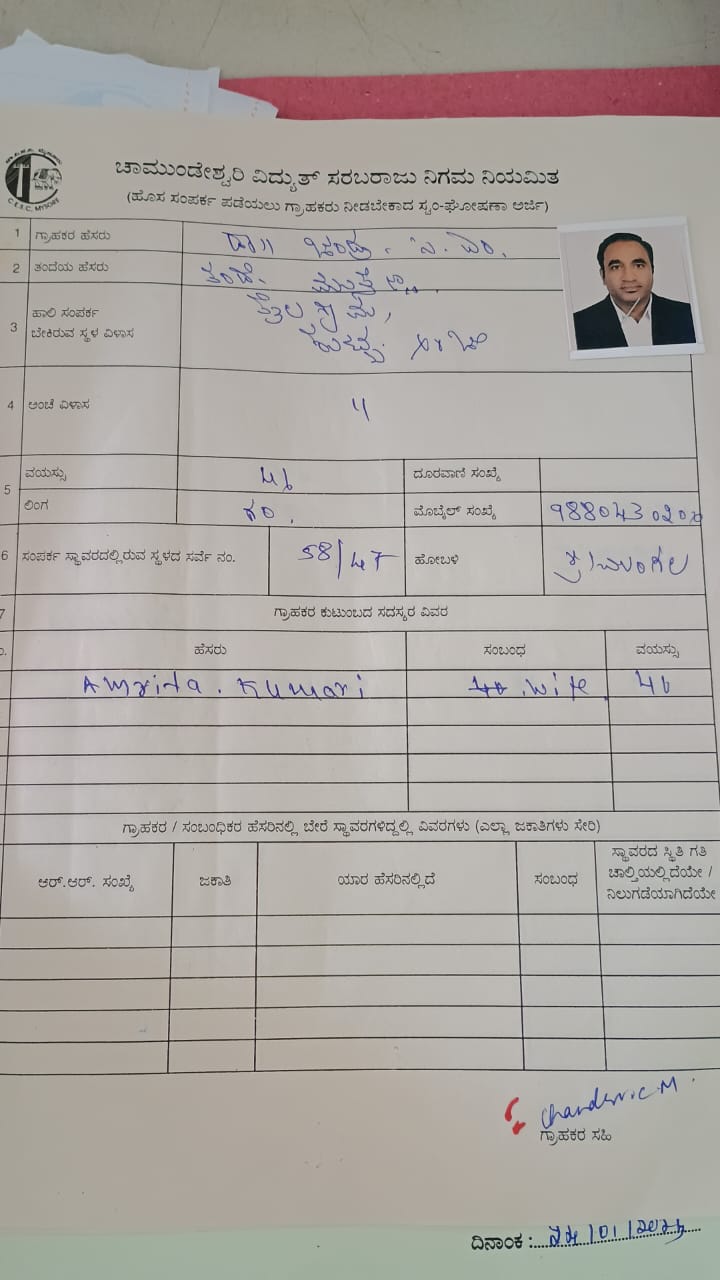 ಚಾಮುಂಡೇಶ್ವರಿ ವಿದ್ಯುತ್ ಸರಬರಾಜು ನಿಗಮ ನಿಯಮಿತ
C.E.S.C, MYSORE
(ಹೊಸ ಸಂಪರ್ಕ ಪಡೆಯಲು ಗ್ರಾಹಕರು ನೀಡಬೇಕಾದ ಸ್ವಂ-ಘೋಷಣಾ ಅರ್ಜಿ)
1 ಗ್ರಾಹಕರ ಹೆಸರು ಡಾ|| ಚಂದ್ರ . ಸಿ . ಎಂ.
2 ತಂದೆಯ ಹೆಸರು ತಂದೆ.
3 ಹಾಲಿ ಸಂಪರ್ಕ
ಬೇಕಿರುವ ಸ್ಥಳ ವಿಳಾಸ
4 ಅಂಚೆ ವಿಳಾಸ 11
5 ವಯಸ್ಸು 46 ದೂರವಾಣಿ ಸಂಖ್ಯೆ
ಲಿಂಗ ಗಂ. ಮೊಬೈಲ್ ಸಂಖ್ಯೆ
6 ಸಂಪರ್ಕ ಸ್ಥಾವರದಲ್ಲಿರುವ ಸ್ಥಳದ ಸರ್ವೆ ನಂ. 58/47 ಹೋಬಳಿ ಶ್ರೀಮಂಗಲ
7 ಗ್ರಾಹಕರ ಕುಟುಂಬದ ಸದಸ್ಯರ ವಿವರ
ಹೆಸರು ಸಂಬಂಧ ವಯಸ್ಸು
Amrita . Kumari wife 40
ಗ್ರಾಹಕರ / ಸಂಬಂಧಿಕರ ಹೆಸರಿನಲ್ಲಿ ಬೇರೆ ಸ್ಥಾವರಗಳಿದ್ದಲ್ಲಿ ವಿವರಗಳು (ಎಲ್ಲಾ ಜಕಾತಿಗಳು ಸೇರಿ)
ಆರ್.ಆರ್. ಸಂಖ್ಯೆ ಜಕಾತಿ ಯಾರ ಹೆಸರಿನಲ್ಲಿದೆ ಸಂಬಂಧ ಸ್ಥಾವರದ ಸ್ಥಿತಿ ಗತಿ
ಚಾಲ್ತಿಯಲ್ಲಿದೆಯೇ /
ನಿಲುಗಡೆಯಾಗಿದೆಯೇ
ಗ್ರಾಹಕರ ಸಹಿ
ದಿನಾಂಕ :